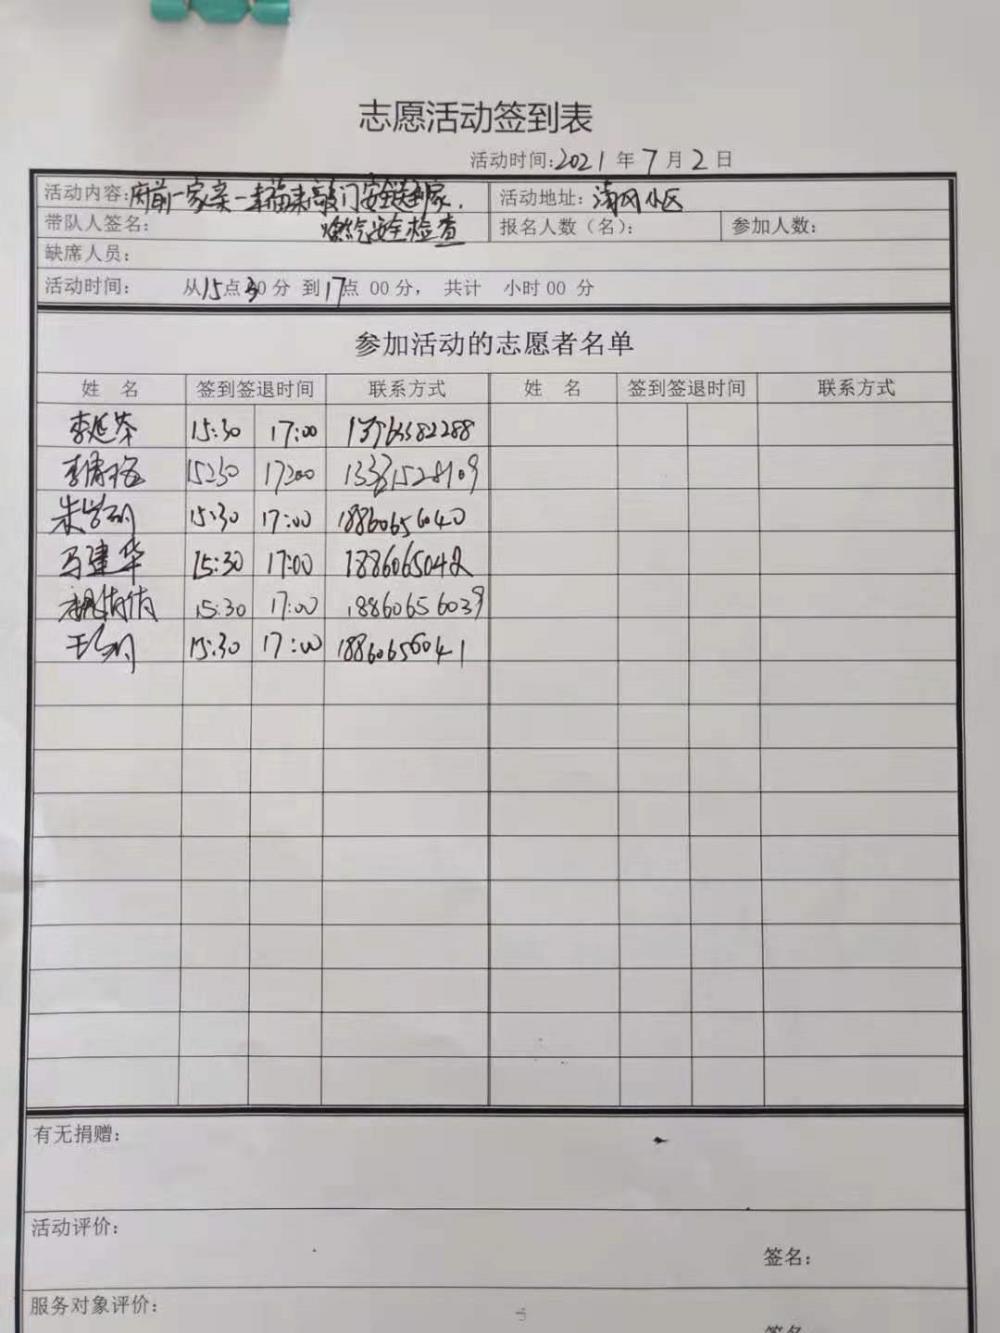 志愿活动签到表
活动时间:2021 年 7 月 2 日
活动内容:府前一家亲—幸福来敲门安全送到家, 活动地址: 清风小区
燃气安全检查
带队人签名: 报名人数(名): 参加人数:
缺席人员:
活动时间: 从15点30分 到17点 00分, 共计 小时00 分
参加活动的志愿者名单
姓 名 签到签退时间 联系方式 姓 名 签到签退时间 联系方式
李延芬 15:30 17:00
15:30 17:00
15:30 17:00 18860656040
马建华 15:30 17:00
倩倩 15:30 17:00 18860656039
15:30 17:00 18860656041
有无捐赠:
活动评价:
签名:
服务对象评价:
签名